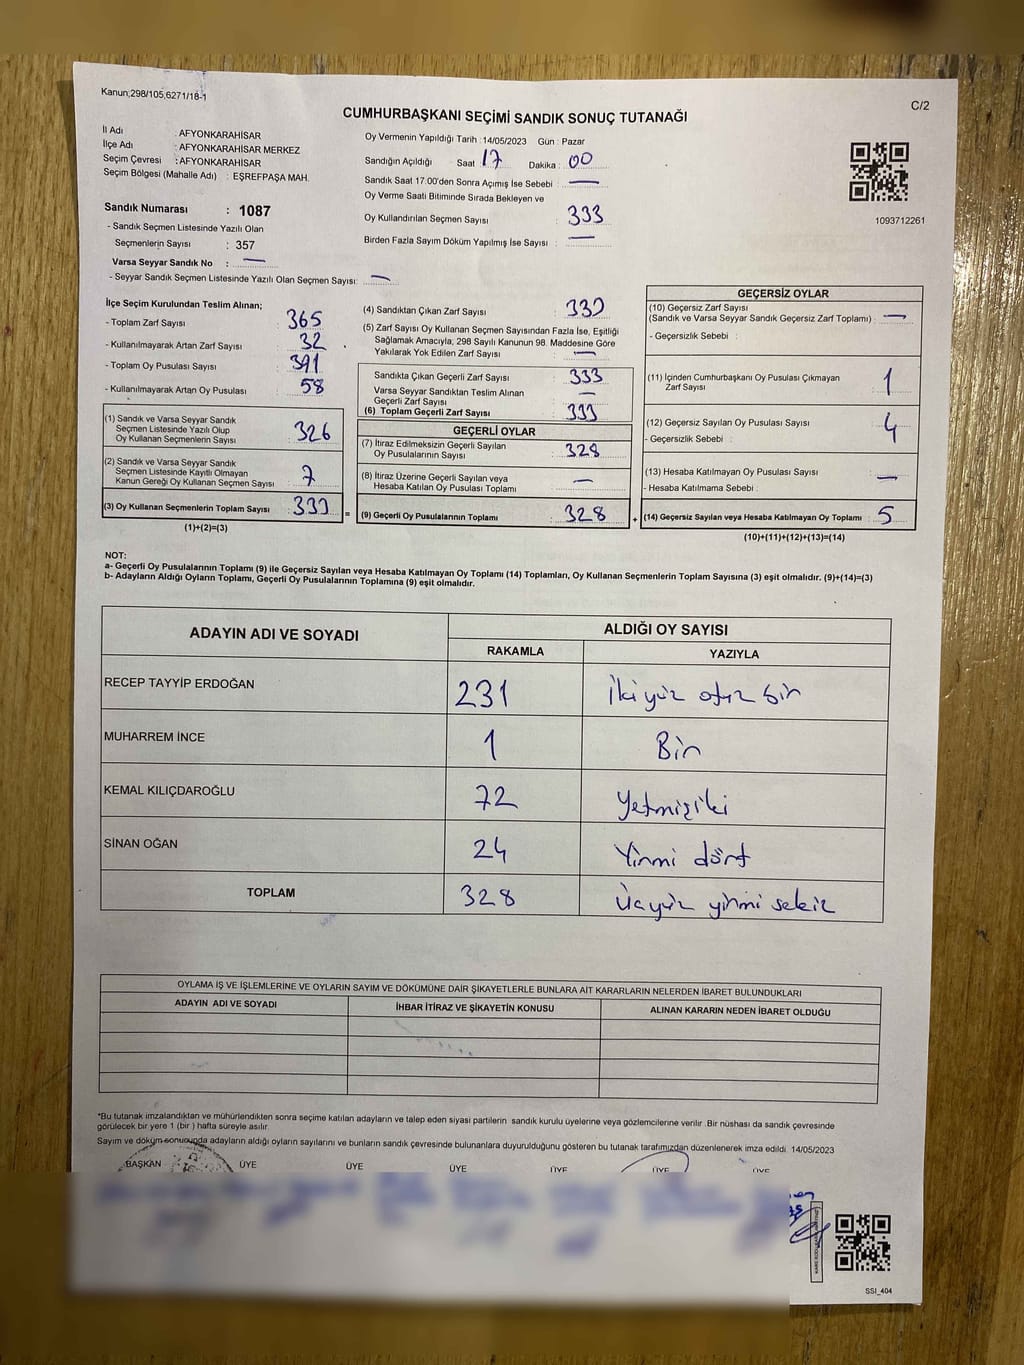 Kanun;298/105,6271/18-1
C/2
CUMHURBAŞKANI SEÇİMİ SANDIK SONUÇ TUTANAĞI
İl Adı : AFYONKARAHİSAR
İlçe Adı : AFYONKARAHİSAR MERKEZ
Seçim Çevresi : AFYONKARAHİSAR
Seçim Bölgesi (Mahalle Adı) : EŞREFPAŞA MAH.
Sandık Numarası : 1087
- Sandık Seçmen Listesinde Yazılı Olan
Seçmenlerin Sayısı : 357
Varsa Seyyar Sandık No : —
- Seyyar Sandık Seçmen Listesinde Yazılı Olan Seçmen Sayısı: —
Oy Vermenin Yapıldığı Tarih : 14/05/2023 Gün : Pazar
Sandığın Açıldığı Saat 17 Dakika : 00
Sandık Saat 17.00'den Sonra Açımış İse Sebebi : —
Oy Verme Saati Bitiminde Sırada Bekleyen ve
Oy Kullandırılan Seçmen Sayısı : 333
Birden Fazla Sayım Döküm Yapılmış İse Sayısı : —
1093712261
İlçe Seçim Kurulundan Teslim Alınan;
- Toplam Zarf Sayısı : 365
- Kullanılmayarak Artan Zarf Sayısı : 32
- Toplam Oy Pusulası Sayısı : 391
- Kullanılmayarak Artan Oy Pusulası : 58
(1) Sandık ve Varsa Seyyar Sandık
Seçmen Listesinde Yazılı Olup
Oy Kullanan Seçmenlerin Sayısı : 326
(2) Sandık ve Varsa Seyyar Sandık
Seçmen Listesinde Kayıtlı Olmayan
Kanun Gereği Oy Kullanan Seçmen Sayısı : 7
(3) Oy Kullanan Seçmenlerin Toplam Sayısı : 333
(1)+(2)=(3)
=
(4) Sandıktan Çıkan Zarf Sayısı : 333
(5) Zarf Sayısı Oy Kullanan Seçmen Sayısından Fazla İse, Eşitliği
Sağlamak Amacıyla, 298 Sayılı Kanunun 98. Maddesine Göre
Yakılarak Yok Edilen Zarf Sayısı : —
Sandıkta Çıkan Geçerli Zarf Sayısı : 333
Varsa Seyyar Sandıktan Teslim Alınan
Geçerli Zarf Sayısı : —
(6) Toplam Geçerli Zarf Sayısı : 333
GEÇERLİ OYLAR
(7) İtiraz Edilmeksizin Geçerli Sayılan
Oy Pusulalarının Sayısı : 328
(8) İtiraz Üzerine Geçerli Sayılan veya
Hesaba Katılan Oy Pusulası Toplamı : —
(9) Geçerli Oy Pusulalarının Toplamı : 328
+
GEÇERSİZ OYLAR
(10) Geçersiz Zarf Sayısı
(Sandık ve Varsa Seyyar Sandık Geçersiz Zarf Toplamı) : —
- Geçersizlik Sebebi :
(11) İçinden Cumhurbaşkanı Oy Pusulası Çıkmayan
Zarf Sayısı : 1
(12) Geçersiz Sayılan Oy Pusulası Sayısı : 4
- Geçersizlik Sebebi :
(13) Hesaba Katılmayan Oy Pusulası Sayısı : —
- Hesaba Katılmama Sebebi :
(14) Geçersiz Sayılan veya Hesaba Katılmayan Oy Toplamı : 5
(10)+(11)+(12)+(13)=(14)
NOT:
a- Geçerli Oy Pusulalarının Toplamı (9) ile Geçersiz Sayılan veya Hesaba Katılmayan Oy Toplamı (14) Toplamları, Oy Kullanan Seçmenlerin Toplam Sayısına (3) eşit olmalıdır. (9)+(14)=(3)
b- Adayların Aldığı Oyların Toplamı, Geçerli Oy Pusulalarının Toplamına (9) eşit olmalıdır.
ADAYIN ADI VE SOYADI
ALDIĞI OY SAYISI
RAKAMLA YAZIYLA
RECEP TAYYİP ERDOĞAN 231 İkiyüz otuz bir
MUHARREM İNCE 1 Bir
KEMAL KILIÇDAROĞLU 72 Yetmişiki
SİNAN OĞAN 24 Yirmi dört
TOPLAM 328 Üçyüz yirmi sekiz
OYLAMA İŞ VE İŞLEMLERİNE VE OYLARIN SAYIM VE DÖKÜMÜNE DAİR ŞİKAYETLERLE BUNLARA AİT KARARLARIN NELERDEN İBARET BULUNDUKLARI
ADAYIN ADI VE SOYADI İHBAR İTİRAZ VE ŞİKAYETİN KONUSU ALINAN KARARIN NEDEN İBARET OLDUĞU
*Bu tutanak imzalandıktan ve mühürlendikten sonra seçime katılan adayların ve talep eden siyasi partilerin sandık kurulu üyelerine veya gözlemcilerine verilir .Bir nüshası da sandık çevresinde
görülecek bir yere 1 (bir ) hafta süreyle asılır.
Sayım ve döküm sonucunda adayların aldığı oyların sayılarını ve bunların sandık çevresinde bulunanlara duyurulduğunu gösteren bu tutanak tarafımızdan düzenlenerek imza edildi. 14/05/2023
BAŞKAN ÜYE ÜYE ÜYE ÜYE ÜYE ÜYE
SSI_404